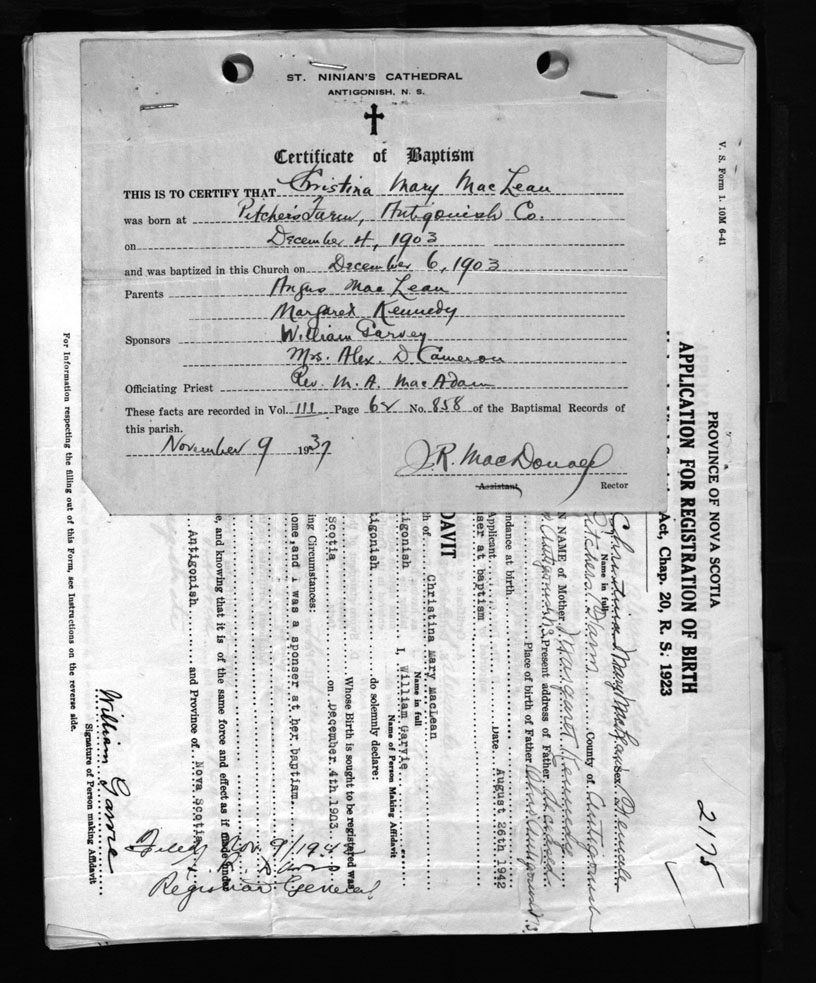 ST. NINIAN'S CATHEDRAL
ANTIGONISH, N. S.
Certificate of Baptism
THIS IS TO CERTIFY THAT Christina Mary MacLean
was born at Pitchers Farm, Antigonish Co.
on December 4, 1903
and was baptized in this Church on December 6, 1903
Parents Angus MacLean
Margaret Kennedy
Sponsors William Garvey
Mrs. Alex. D. Cameron
Officiating Priest Rev. M. A. MacAdam
These facts are recorded in Vol. 111 Page 62 No. 858 of the Baptismal Records of
this parish.
November 9 1937
J. R. MacDonald
Assistant Rector
V. S. Form 1. 10M 6-41
2175
PROVINCE OF NOVA SCOTIA
APPLICATION FOR REGISTRATION OF BIRTH
Act, Chap. 20, R. S. 1923
Christina Mary MacLean Sex Female
Name in full
Pitchers Farm County of Antigonish
NAME of Mother Margaret Kennedy
Antigonish Present address of Father Deceased
Place of birth of Father
ndance at birth.
Applicant Date August 26th 1942
ser at baptism
DAVIT
th of Christina Mary MacLean
Name in full
tigonish I, William Garvie
Name of Person Making Affidavit
tigonish do solemnly declare:
Whose Birth is sought to be registered was
Scotia on December 4th 1903
ing Circumstances:
home, and I was a sponser at her baptism.
e, and knowing that it is of the same force and effect as if made under
Antigonish and Province of Nova Scotia
Filed Nov. 9/19
Registrar General
William Garvie
Signature of Person making Affidavit
For Information respecting the filling out of this Form, see Instructions on the reverse side.